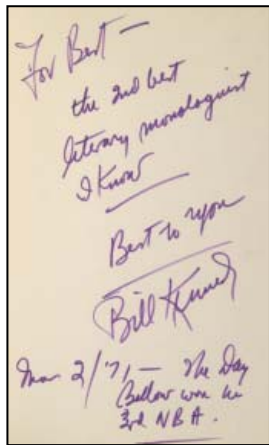 For Bert —
the 2nd best
literary monologuist
I know
Best to you
Bill Kennedy
Mar 2/71 — The Day
Bellow won his
3rd NBA.